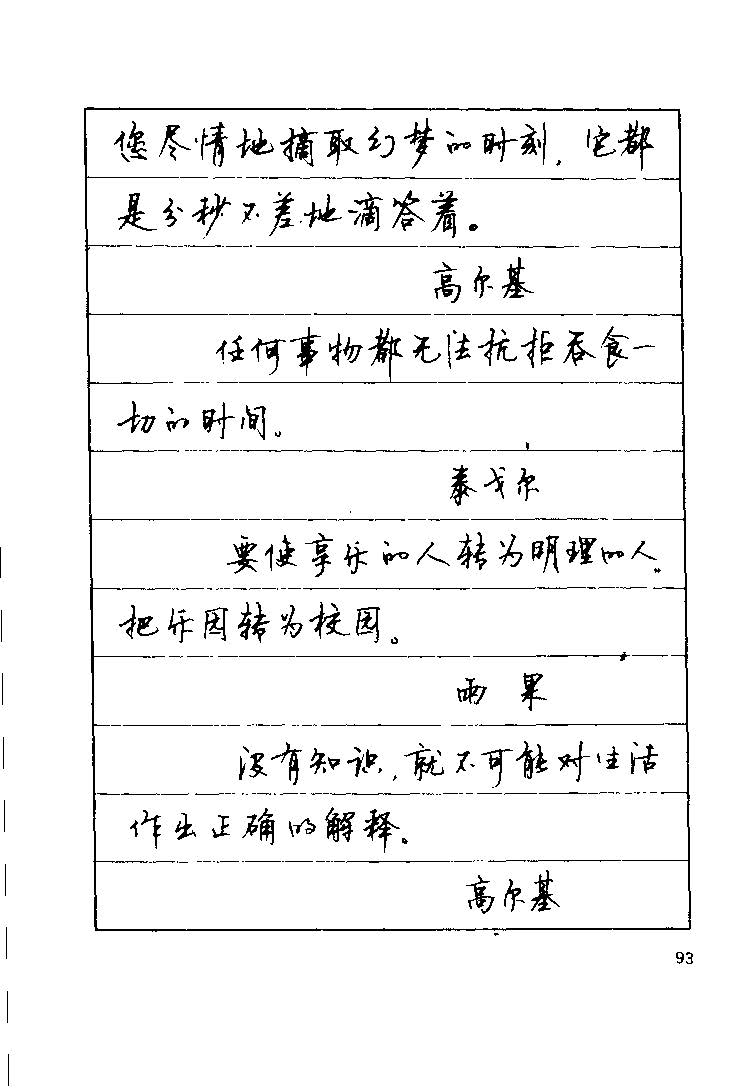 您尽情地摘取幻梦的时刻，它都
是分秒不差地滴答着。
高尔基
任何事物都无法抗拒吞食一
切的时间。
泰戈尔
要使享乐的人转为明理的人。
把乐园转为校园。
雨果
没有知识，就不可能对生活
作出正确的解释。
高尔基
93